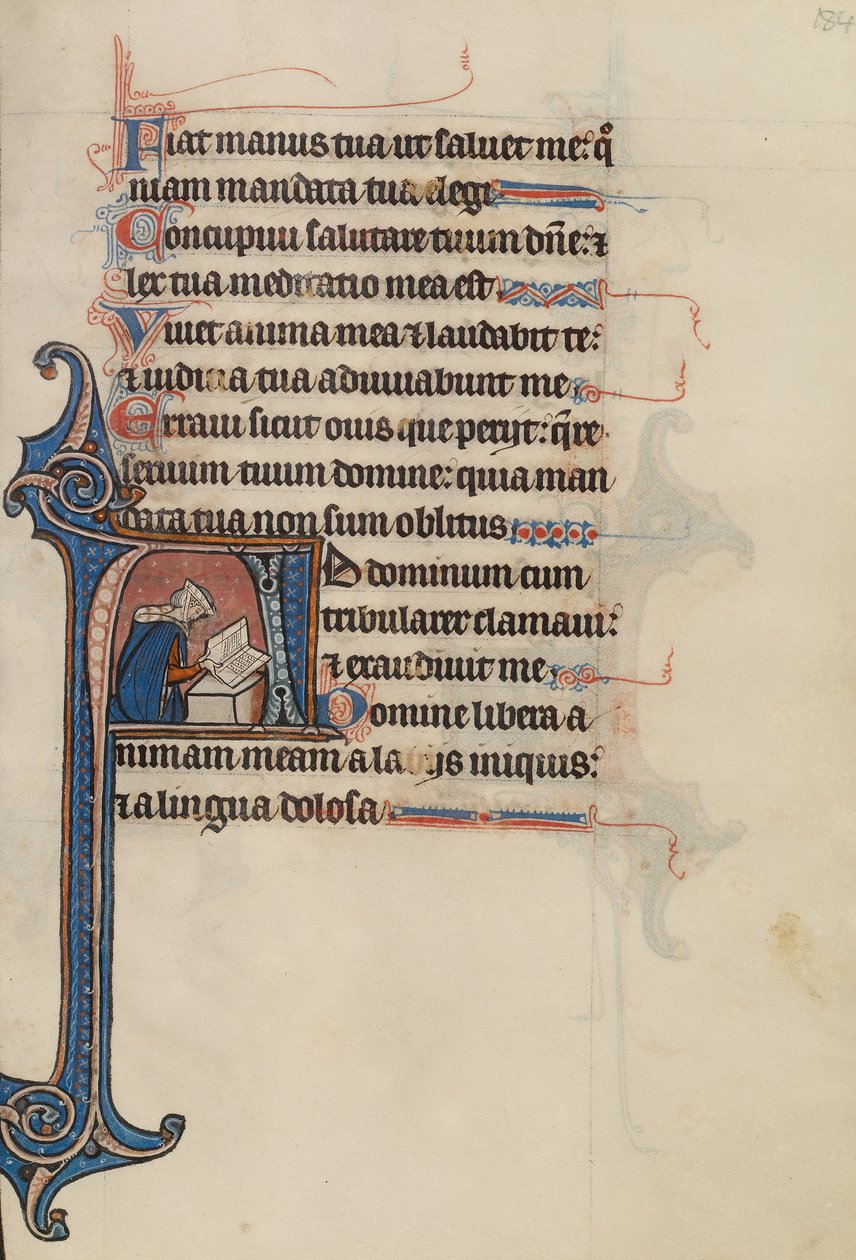 184
Fiat manus tua ut saluet me: qͦ
niam mandata tua elegi
Concupiui salutare tuum dn̄e: ⁊
lex tua meditatio mea est
Viuet anima mea ⁊ laudabit te:
⁊ iudicia tua adiuuabunt me
Erraui sicut ouis que perijt: q̄re
seruum tuum domine: quia man
data tua non sum oblitus
AD dominum cum
tribularer clamaui:
⁊ exaudiuit me
Domine libera a
nimam meam a labijs iniquis:
⁊ a lingua dolosa